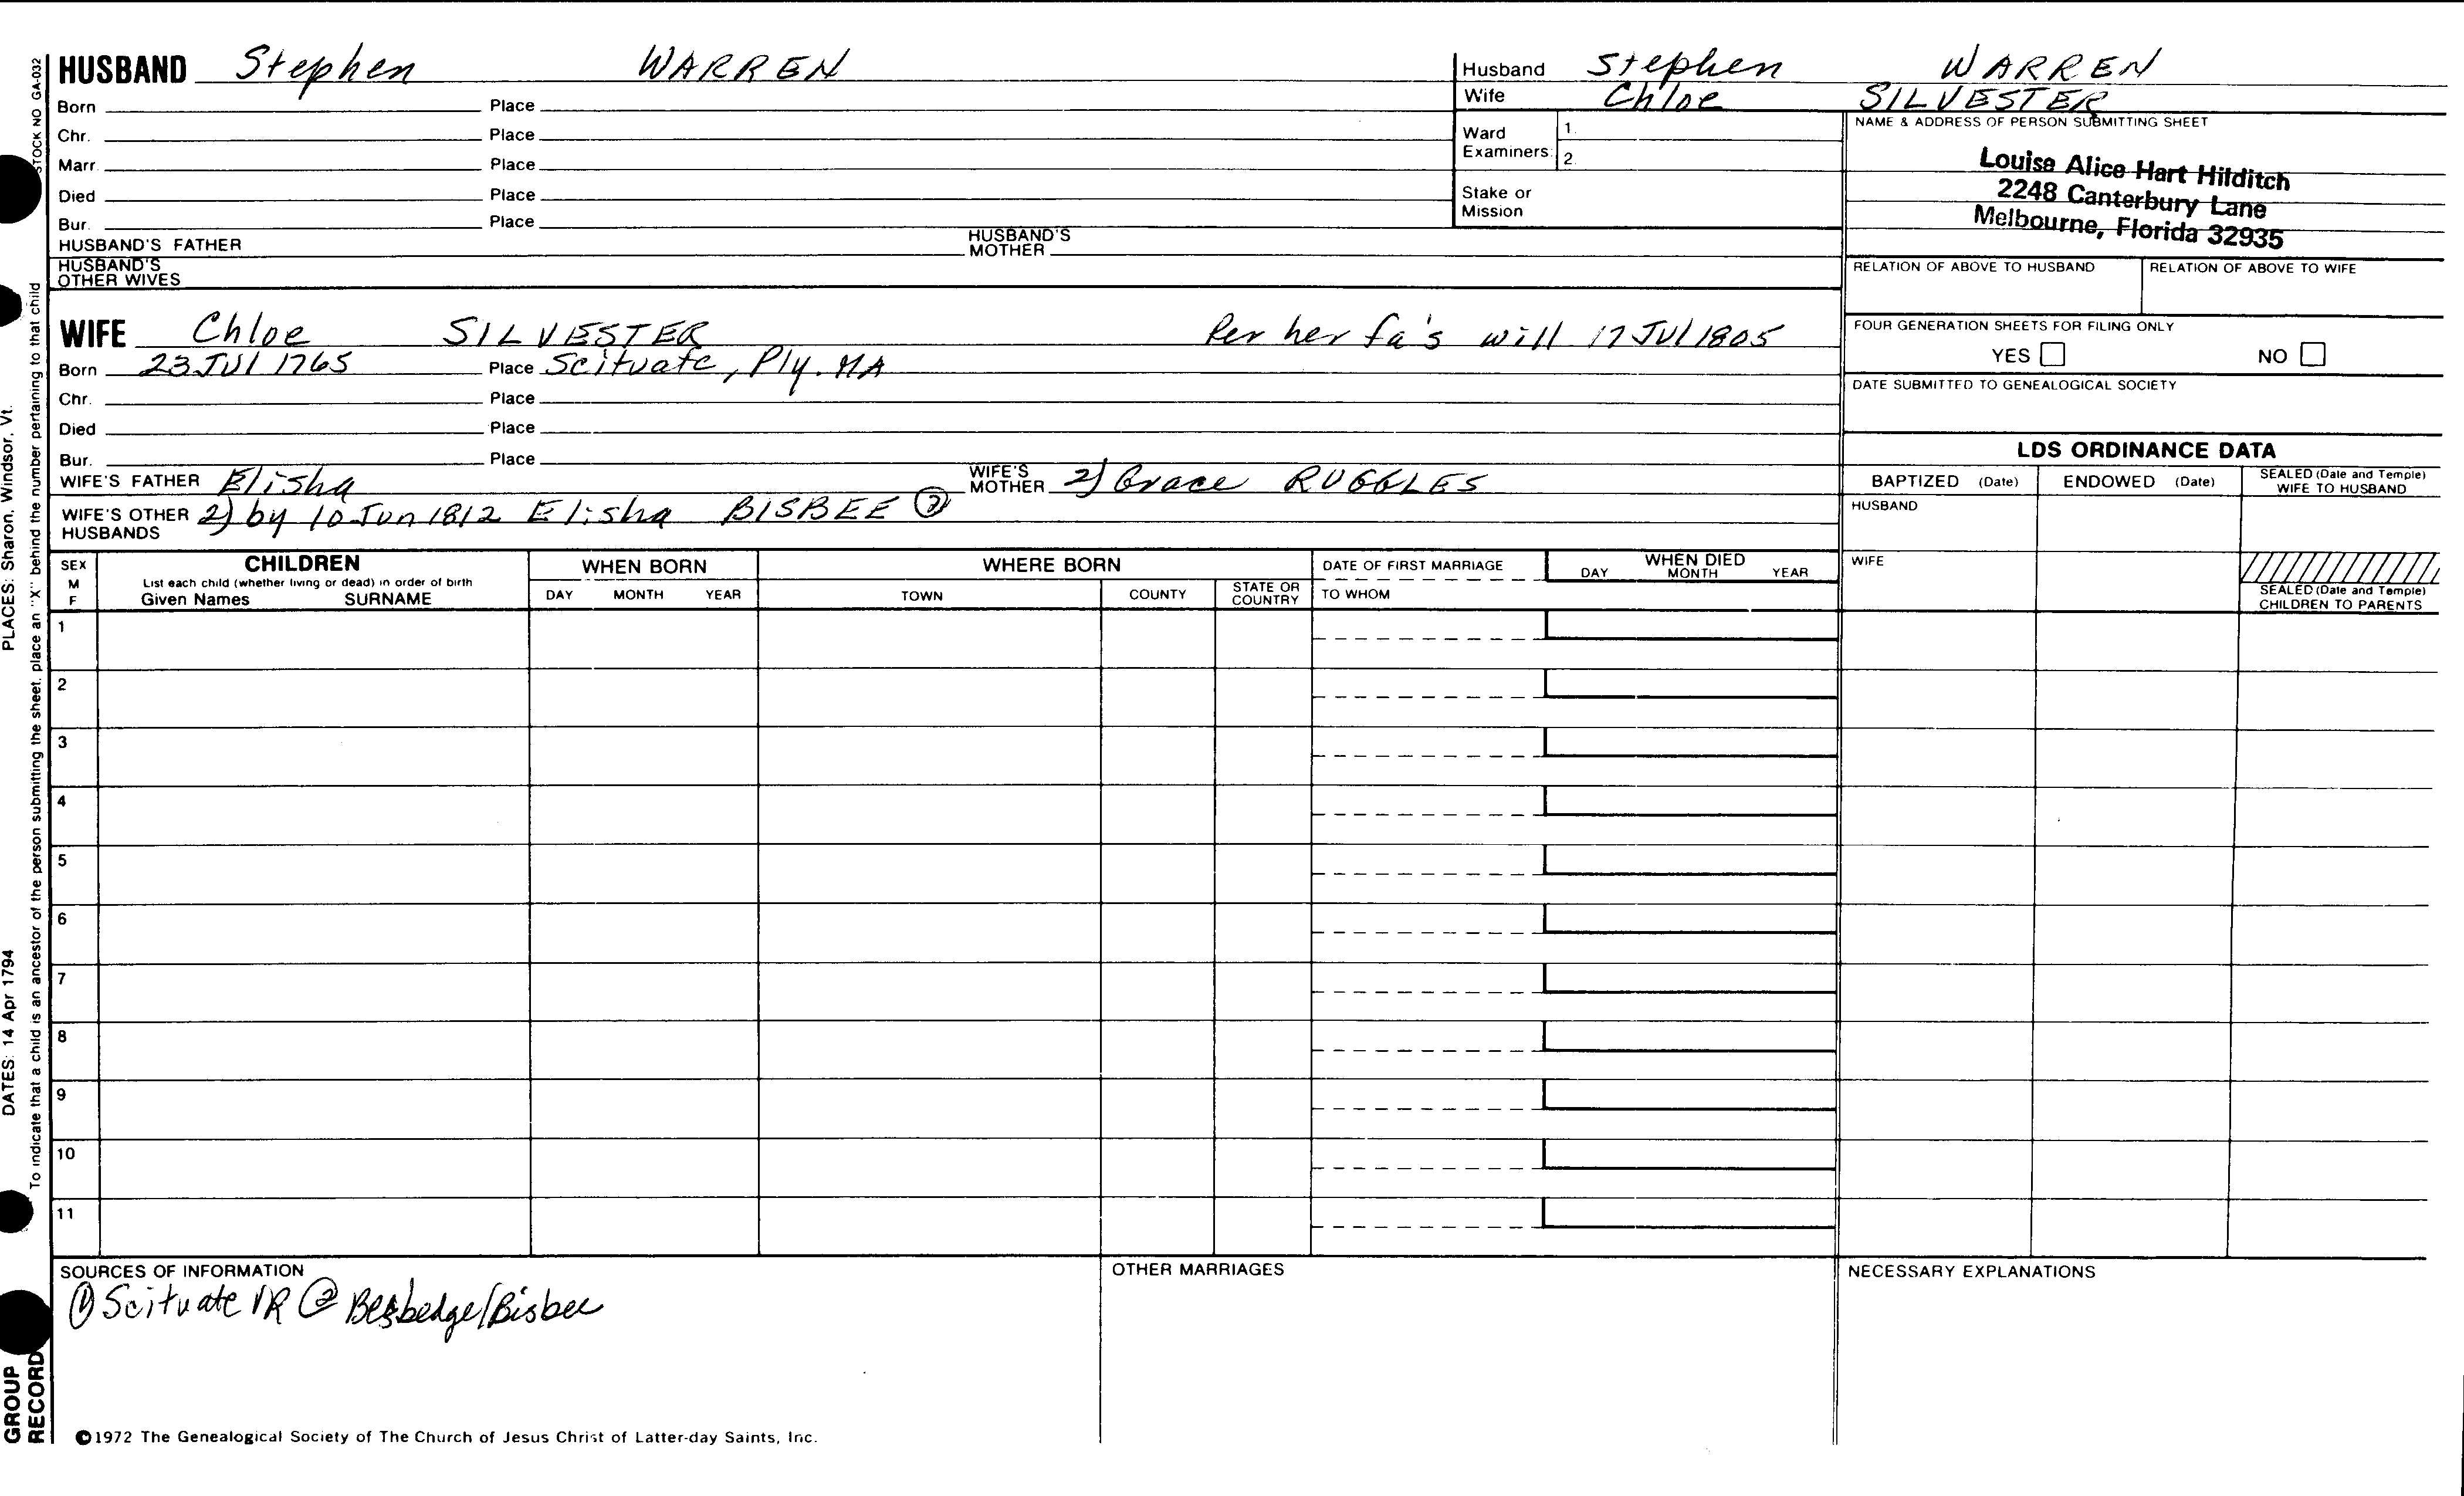 HUSBAND Stephen WARREN
Born Place
Chr. Place
Marr. Place
Died Place
Bur. Place
HUSBAND'S FATHER HUSBAND'S MOTHER
HUSBAND'S OTHER WIVES
Husband Stephen WARREN
Wife Chloe SILVESTER
Ward Examiners: 1. 2.
Stake or Mission
NAME & ADDRESS OF PERSON SUBMITTING SHEET
Louise Alice Hart Hilditch
2248 Canterbury Lane
Melbourne, Florida 32935
RELATION OF ABOVE TO HUSBAND RELATION OF ABOVE TO WIFE
FOUR GENERATION SHEETS FOR FILING ONLY
YES NO
DATE SUBMITTED TO GENEALOGICAL SOCIETY
WIFE Chloe SILVESTER Per her fa's will 17 JUl 1805
Born 23 JUl 1765 Place Scituate, Ply. MA
Chr. Place
Died Place
Bur. Place
WIFE'S FATHER Elisha WIFE'S MOTHER 2) Grace RUGGLES
WIFE'S OTHER HUSBANDS 2) by 10 Jun 1812 Elisha BISBEE ②
LDS ORDINANCE DATA
BAPTIZED (Date) ENDOWED (Date) SEALED (Date and Temple) WIFE TO HUSBAND
HUSBAND
WIFE
SEALED (Date and Temple) CHILDREN TO PARENTS
SEX M F
CHILDREN
List each child (whether living or dead) in order of birth
Given Names SURNAME
WHEN BORN
DAY MONTH YEAR
WHERE BORN
TOWN COUNTY STATE OR COUNTRY
DATE OF FIRST MARRIAGE
TO WHOM
WHEN DIED
DAY MONTH YEAR
1
2
3
4
5
6
7
8
9
10
11
SOURCES OF INFORMATION
① Scituate VR ② Besbedge/Bisbee
OTHER MARRIAGES
NECESSARY EXPLANATIONS
©1972 The Genealogical Society of The Church of Jesus Christ of Latter-day Saints, Inc.
STOCK NO GA-032
To indicate that a child is an ancestor of the person submitting the sheet, place an "X" behind the number pertaining to that child
GROUP RECORD
DATES: 14 Apr 1794
PLACES: Sharon, Windsor, Vt.